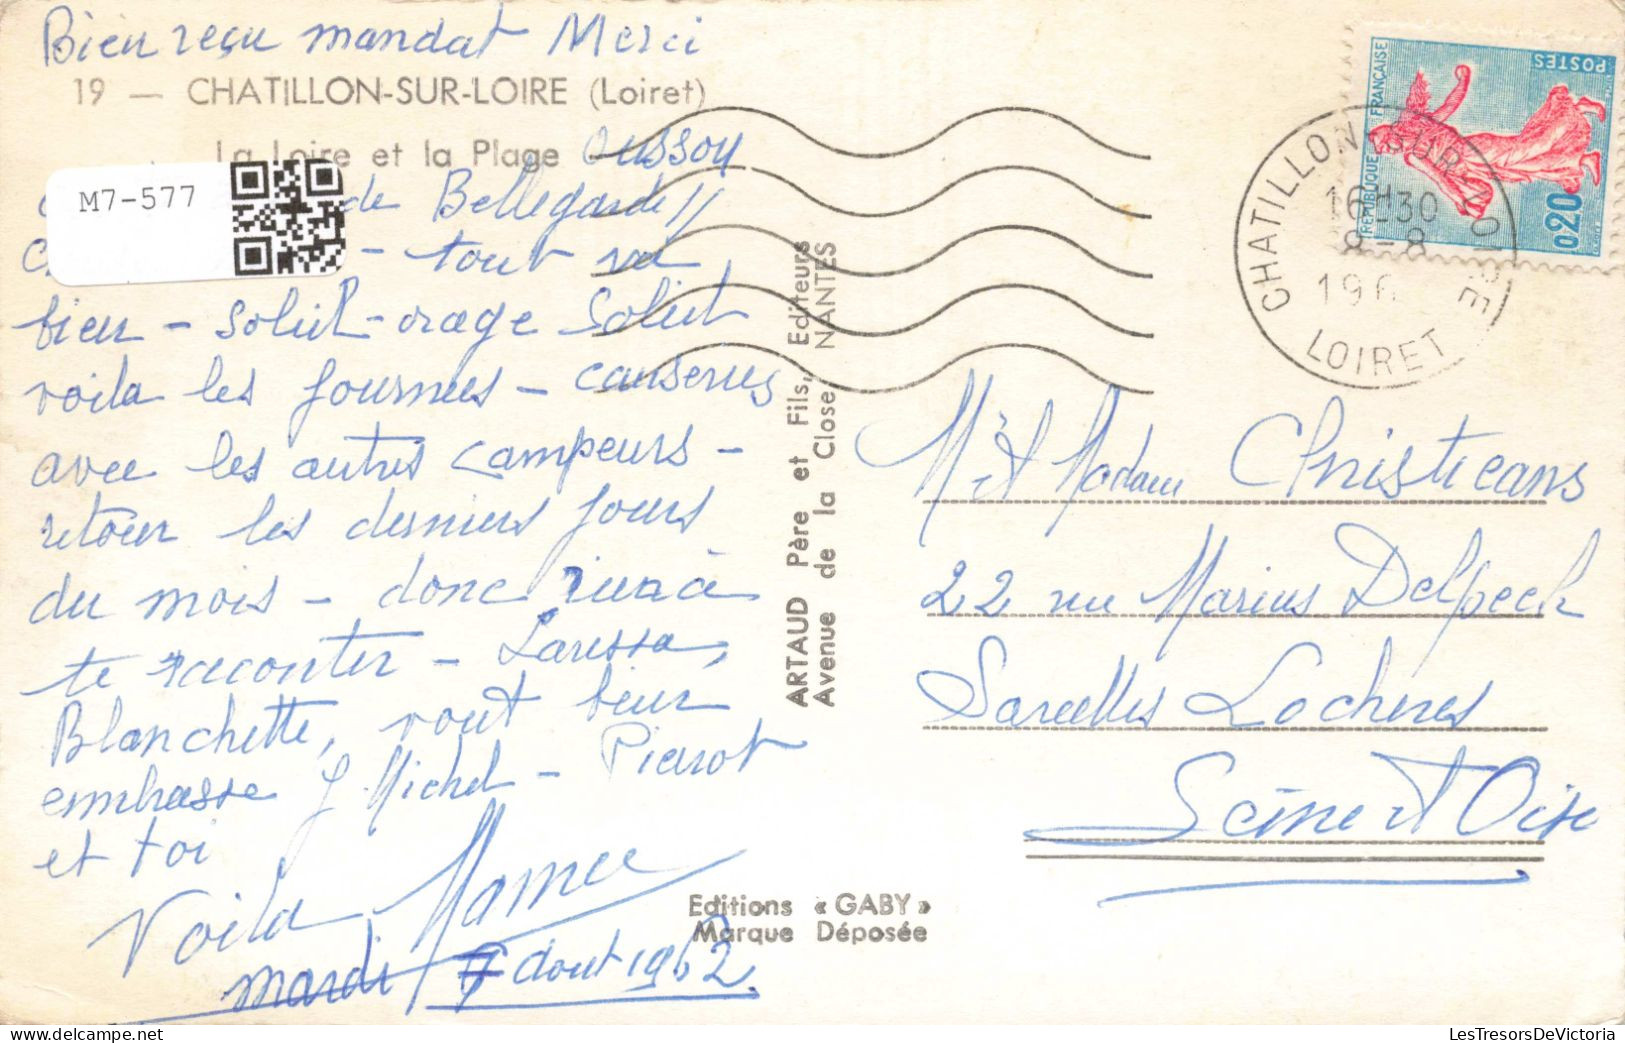 Bien reçu mandat Merci
19 — CHATILLON-SUR-LOIRE (Loiret)
La Loire et la Plage
Oussoy
de Bellegarde
M7-577
- tout va
bien - Soleil - orage Soleil
voila les journees - causeries
avec les autres campeurs -
retour les derniers jours
du mois - donc à
te raconter - Larissa,
Blanchette, vont bien
embrasse J. Michel - Pierrot
et toi
Voila Mamee
mardi 7 Aout 1962
ARTAUD Père et Fils, Editeurs
Avenue de la Close, NANTES
Editions « GABY »
Marque Déposée
REPUBLIQUE FRANÇAISE
POSTES
0,20
CHATILLON-SUR-LOIRE
16H30
8-8
196
LOIRET
Mr et Madame Christieans
22 rue Marius Delpech
Sarcelles Locheres
Seine et Oise
LesTresorsDeVictoria.com